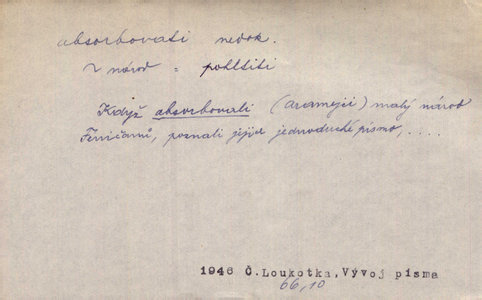 absorbovati nedok.
z národ = pohltiti
Když absorbovali (aramejci) malý národ
Feničanů, poznali jejich jednoduché písmo, ....
1946 Č.Loukotka,Vývoj písma
66,10